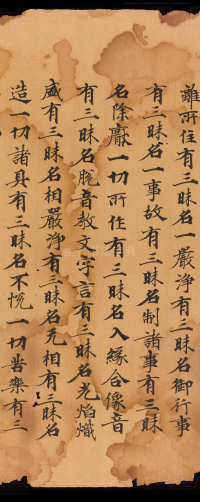 離所住有三昧名一嚴淨有三昧名御行事
有三昧名一事故有三昧名制諸事有三昧
名除厭一切所住有三昧名入緣合像音
有三昧名脫音教文字言有三昧名光焰熾
威有三昧名相嚴淨有三昧名无相有三昧名
造一切諸具有三昧名不恱一切苦樂有三